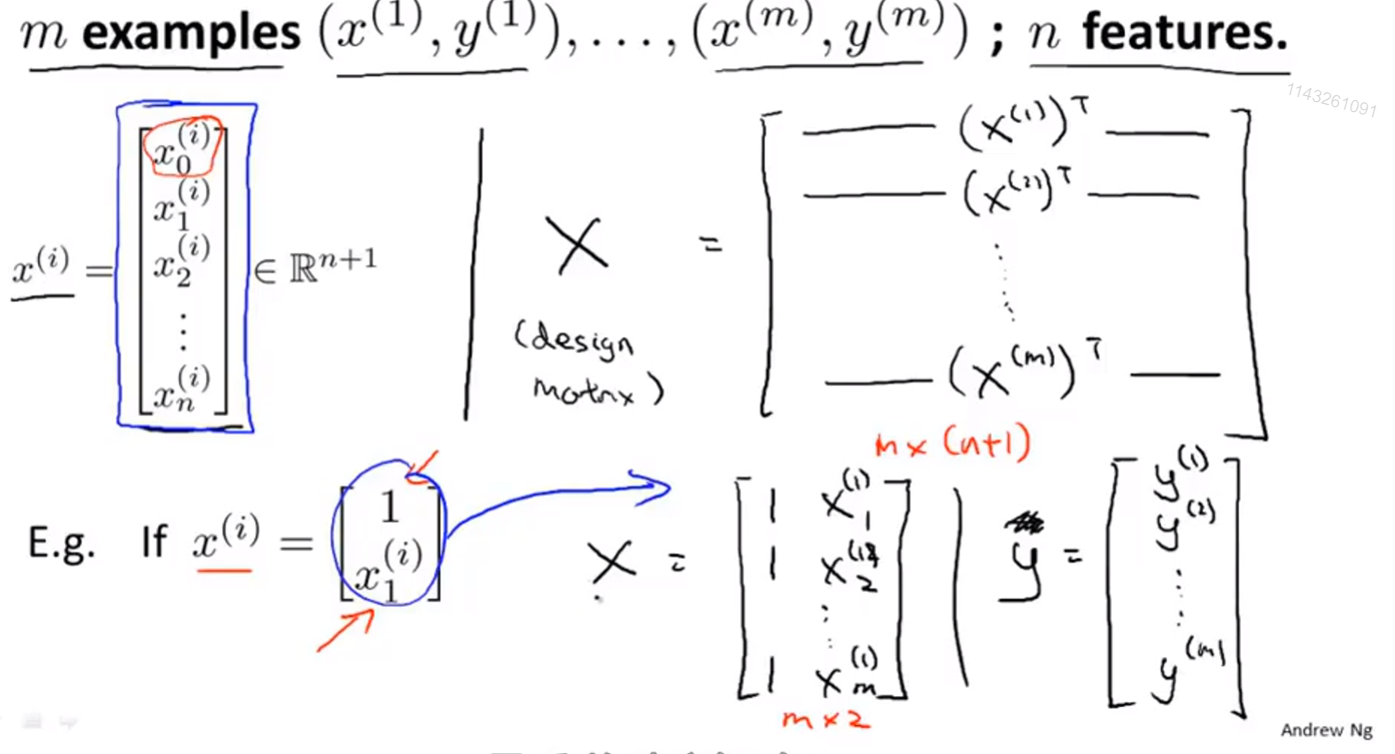 m examples (x^(1), y^(1)), . . . , (x^(m), y^(m)) ; n features.
1143261091
x^(i) = [x_0^(i) x_1^(i) x_2^(i) ⋮ x_n^(i)] ∈ ℝ^{n+1}
X = [— (x^(1))^T — — (x^(2))^T — ⋮ — (x^(m))^T —]
(design
matrix)
m x (n+1)
E.g. If x^(i) = [1 x_1^(i)]
X = [1 x_1^(1) 1 x_2^(1) ⋮ 1 x_m^(1)]
m x 2
y = [y^(1) y^(2) ⋮ y^(m)]
Andrew Ng